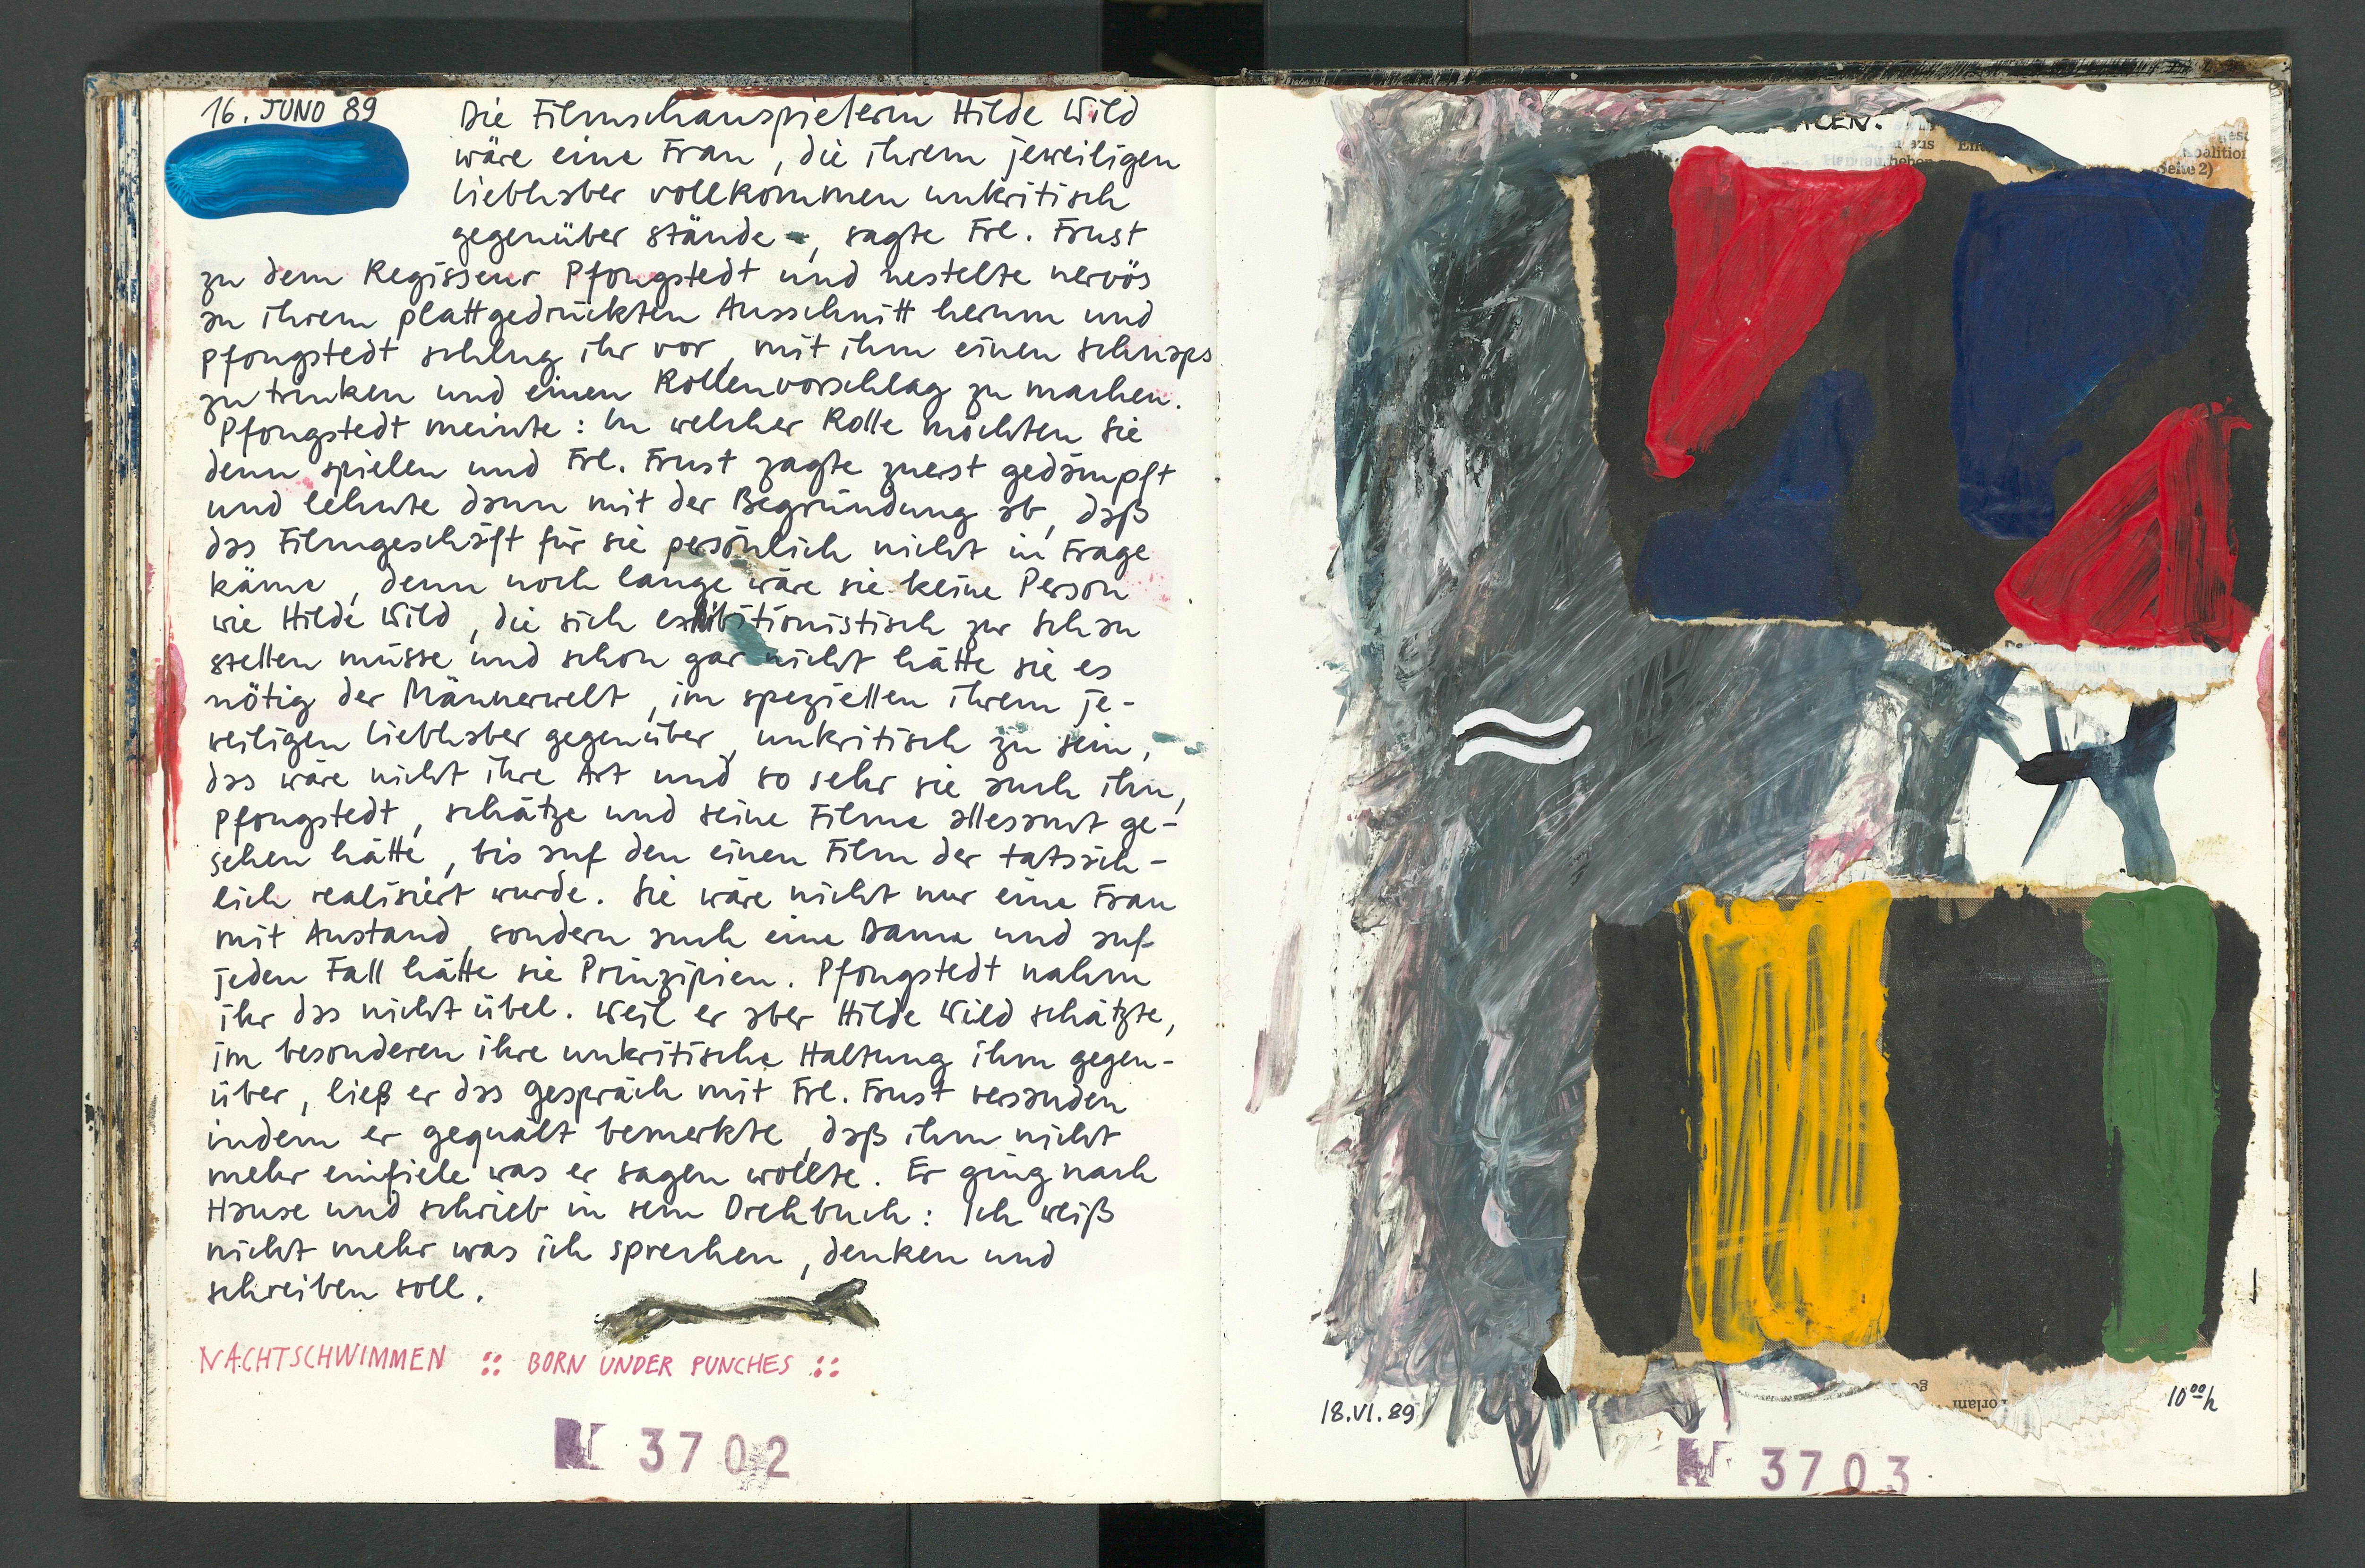 16. JUNO 89
Die Filmschauspielerin Hilde Wild
wäre eine Frau, die ihrem jeweiligen
Liebhaber vollkommen unkritisch
gegenüber stände, sagte Frl. Frust
zu dem Regisseur Pfongstedt und nestelte nervös
an ihrem plattgedrückten Ausschnitt herum und
Pfongstedt schlug ihr vor, mit ihm einen Schnaps
zu trinken und einen Rollenvorschlag zu machen.
Pfongstedt meinte: In welcher Rolle möchten Sie
denn spielen und Frl. Frust zagte zuerst gedämpft
und lehnte dann mit der Begründung ab, daß
das Filmgeschäft für sie persönlich nicht in Frage
käme, denn noch lange wäre sie keine Person
wie Hilde Wild, die sich exhibitionistisch zur Schau
stellen müsse und schon gar nicht hätte sie es
nötig der Männerwelt, im speziellen ihrem je-
weiligen Liebhaber gegenüber, unkritisch zu sein,
das wäre nicht ihre Art und so sehr sie auch ihn,
Pfongstedt, schätze und seine Filme allesamt ge-
sehen hätte, bis auf den einen Film der tatsäch-
lich realisiert wurde. Sie wäre nicht nur eine Frau
mit Anstand, sondern auch eine Dame und auf
jeden Fall hätte sie Prinzipien. Pfongstedt nahm
ihr das nicht übel. Weil er aber Hilde Wild schätzte,
im besonderen ihre unkritische Haltung ihm gegen-
über, ließ er das Gespräch mit Frl. Frust versanden
indem er gequält bemerkte, daß ihm nicht
mehr einfiele was er sagen wollte. Er ging nach
Hause und schrieb in sein Drehbuch: Ich weiß
nicht mehr was ich sprechen, denken und
schreiben soll.
NACHTSCHWIMMEN :: BORN UNDER PUNCHES ::
N 3702
aus
heben
Seite 2)
18.VI.89
10 00 h
N 3703